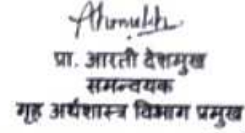 प्रा. आरती देशमुख
समन्वयक
गृह अर्थशास्त्र विभाग प्रमुख